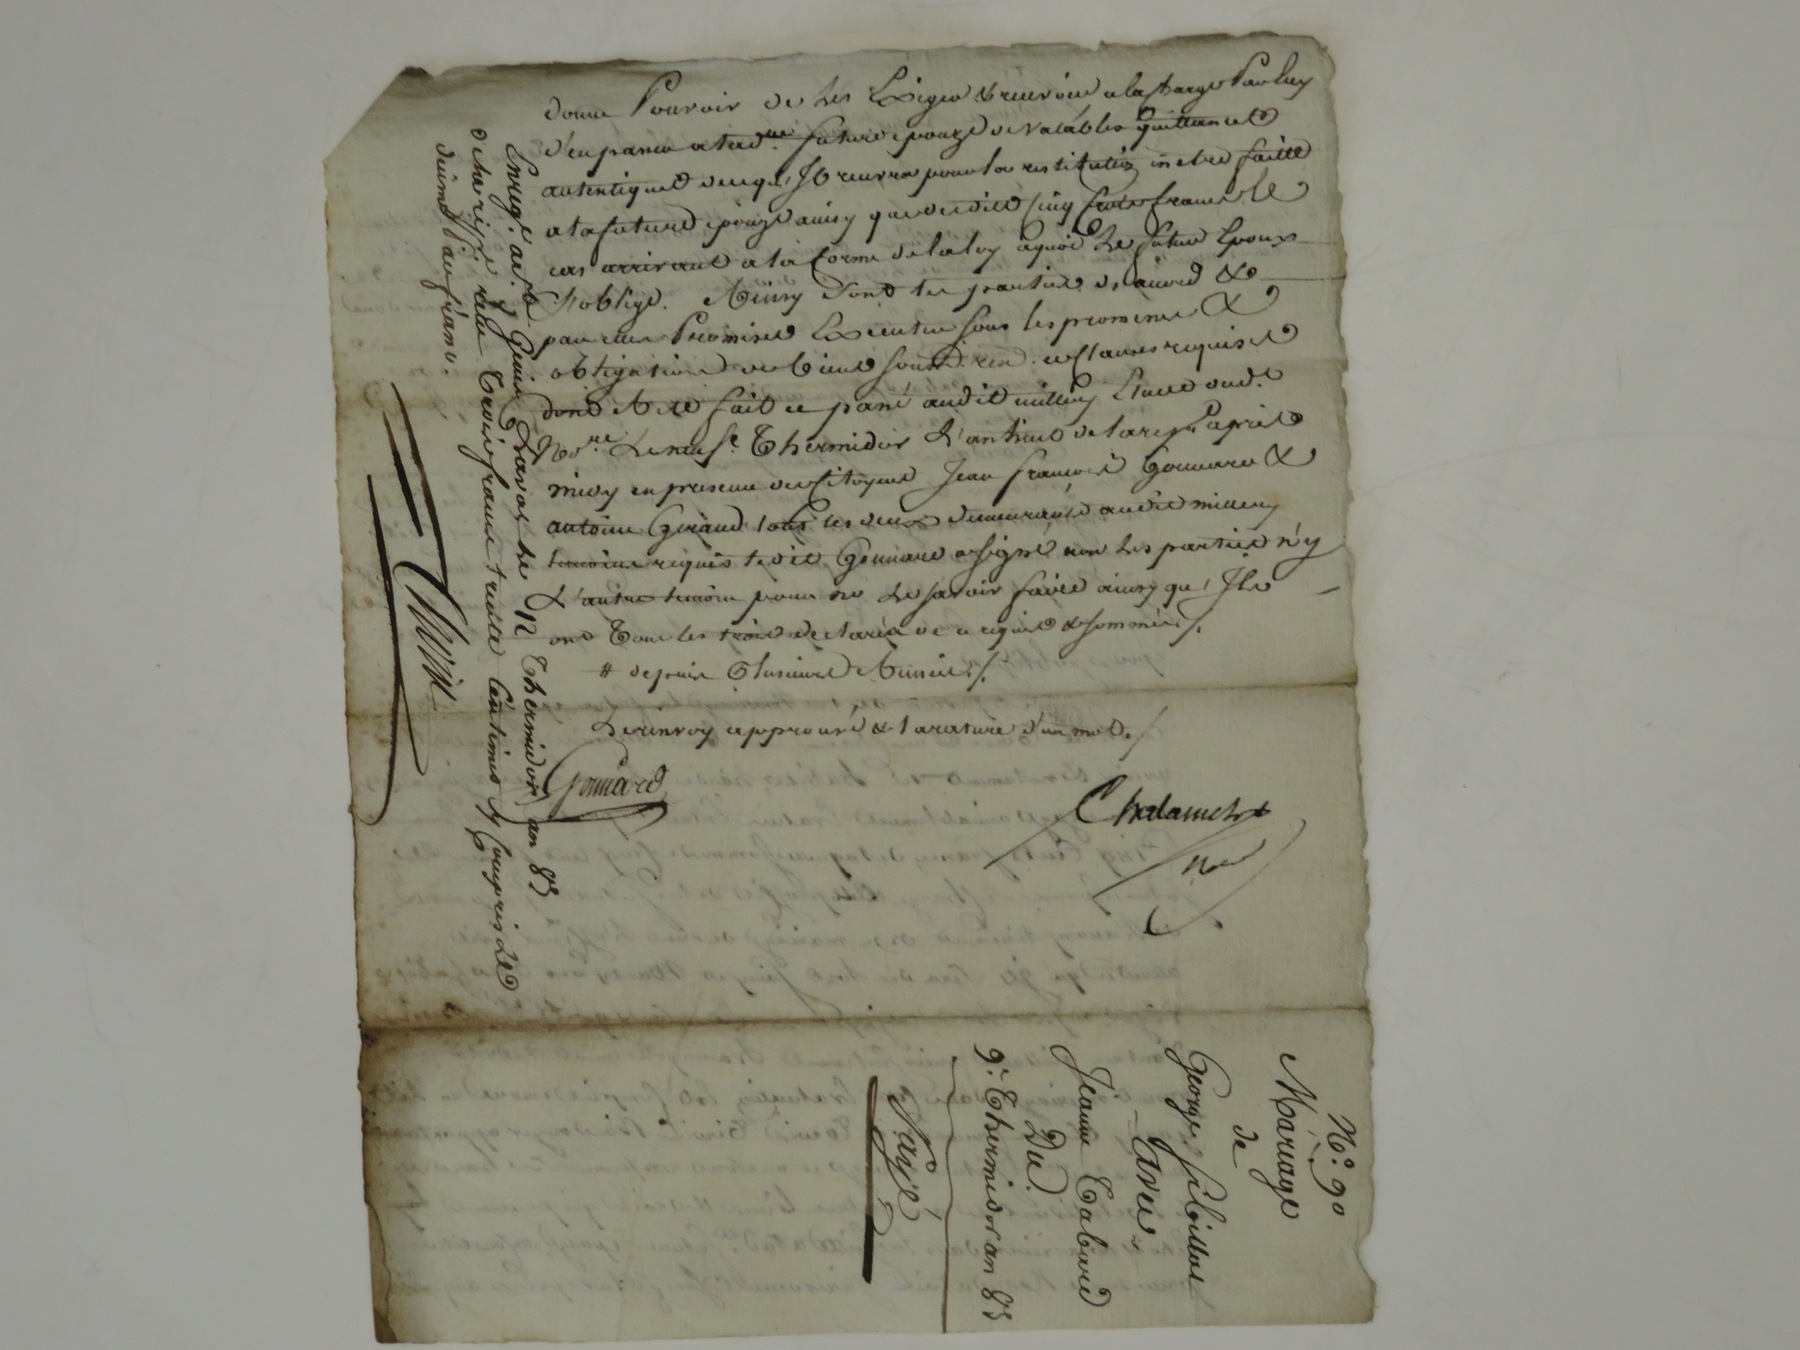 donne Pouvoir de les Exiger & recevoir a la charge Par luy
d'en passer a lad.ue future epouze de valables quittances
autentiques de ce qu'Il recevra pour la restitution en etre faitte
a la future epouze ainsy que desdits Cinq Cents francs le
cas arrivant a la forme de la loy a quoi le futur Epoux
s'oblige. Ainsy sont les parties d'accord &
par elles Promises Executer sous les promesses &
obligations de biens soum. ren. et clauses requises
dont Acte fait et passé audit millery Etude dud.
No.re le neuf.e Thermidor L'an huit de la rep. après
midy en presence des Citoyens Jean François Gonnard &
antoine Giraud tous les deux demeurants audit millery
temoins requis ledit Gonnard a signé non les parties n'y
L'autre temoin pour ne le savoir faire ainsy qu'Ils
ont Tous les trois declaré de ce requis & sommés ./.
# depuis Plusieurs Années ./.
Le renvoy approuvé & la rature d'un mot ./
Gonnard
Chalamel
Nre
Enreg. a Genis Laval le 12 Thermidor an 8
reçu Trois francs trente Centimes y Compris le
decime par franc.
N.° 90
Mariage
de
George
Avec
Jeanne Tabard
Du
9.e Thermidor an 8
Payé